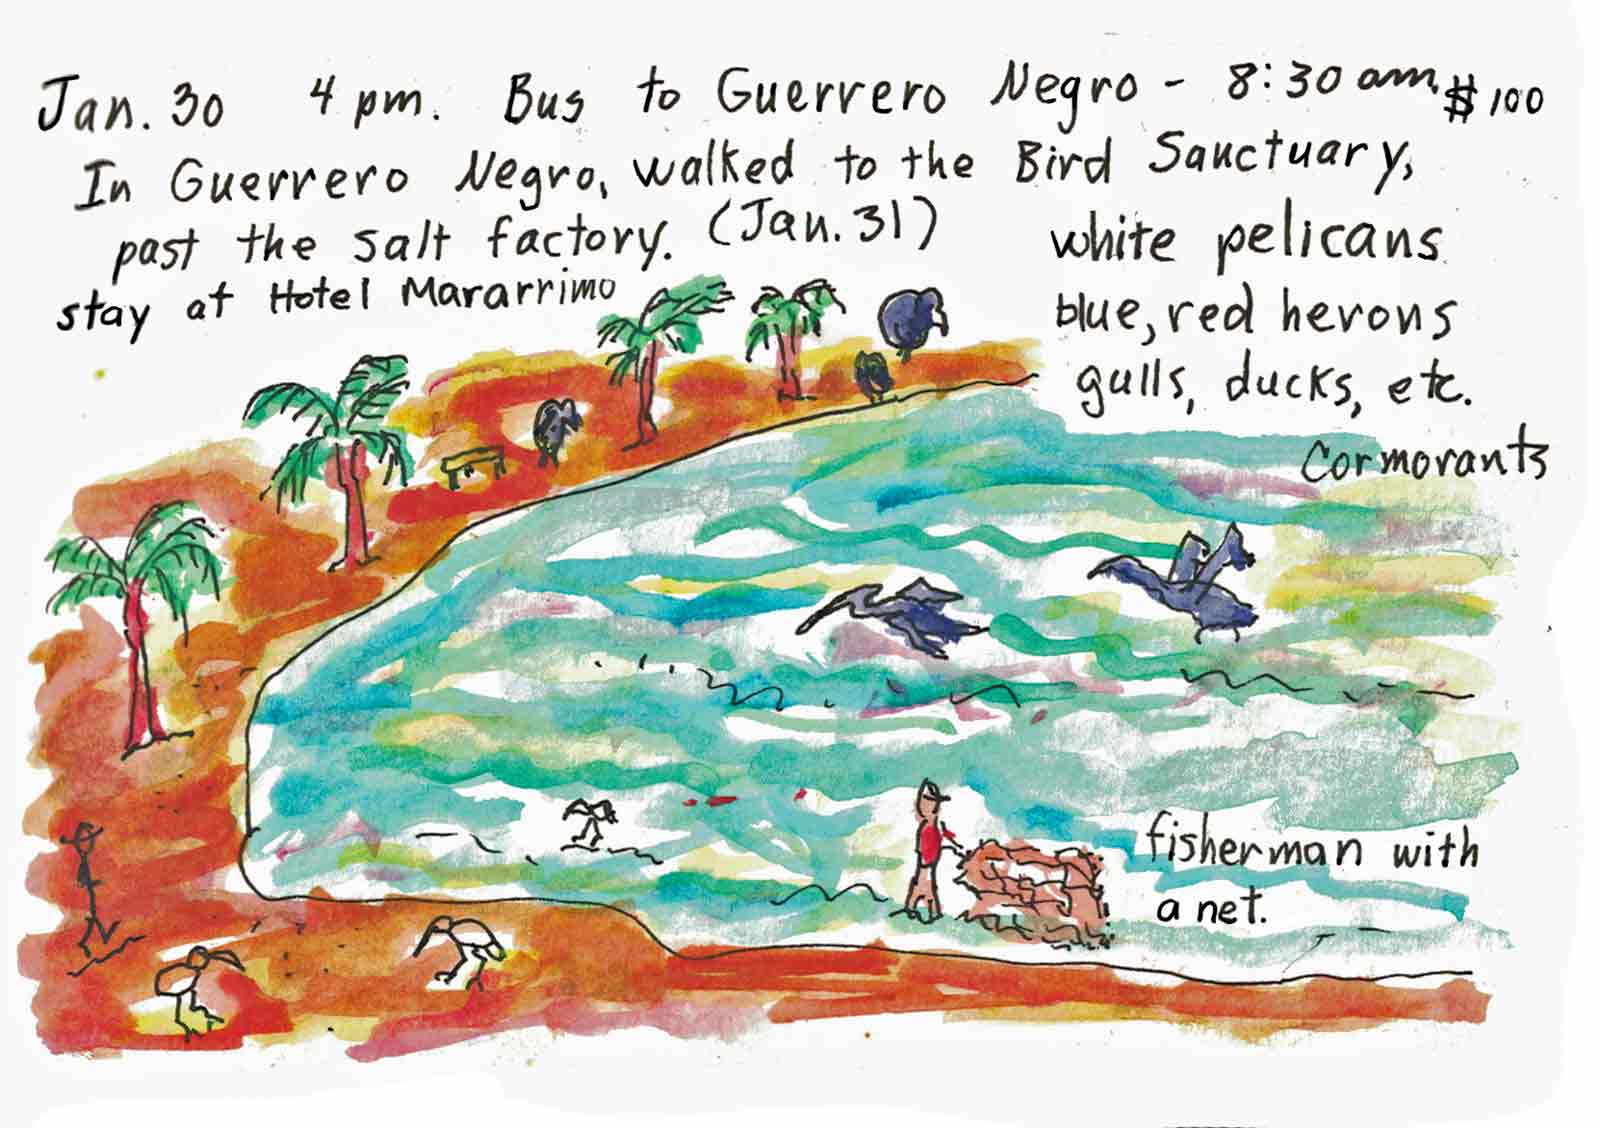 Jan. 30 4 pm. Bus to Guerrero Negro - 8:30 am. $100
In Guerrero Negro, walked to the Bird Sanctuary,
past the salt factory. (Jan. 31)
stay at Hotel Mararrimo
white pelicans
blue, red herons
gulls, ducks, etc.
cormorants
fisherman with
a net.